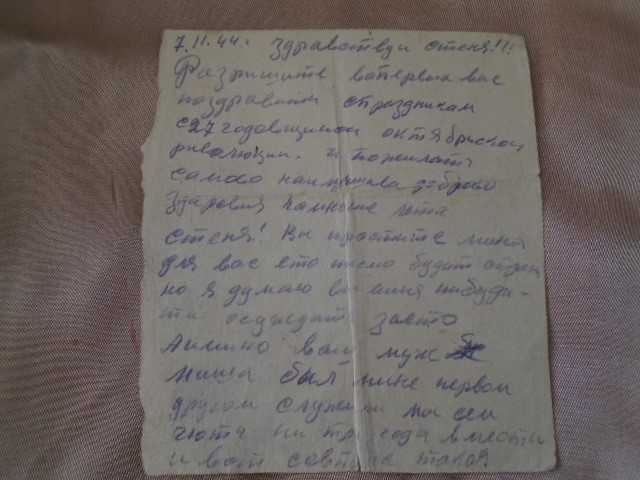 7.11.44г. здравствуй стеня!!!
Разришите вопервых вас
поздравить спраздником
с27 годовщиной октябрьской
риволюции. и пожилать
самово наилучшева доброво
здаровия
стеня! Вы простите миня
для вас ето писмо будит
но я думаю вы миня нибуди-
ти осуждать заето
Аимино ваш муж
миша был мине первой
другом служили мы сим
чють ни три года вмести
и вот такая